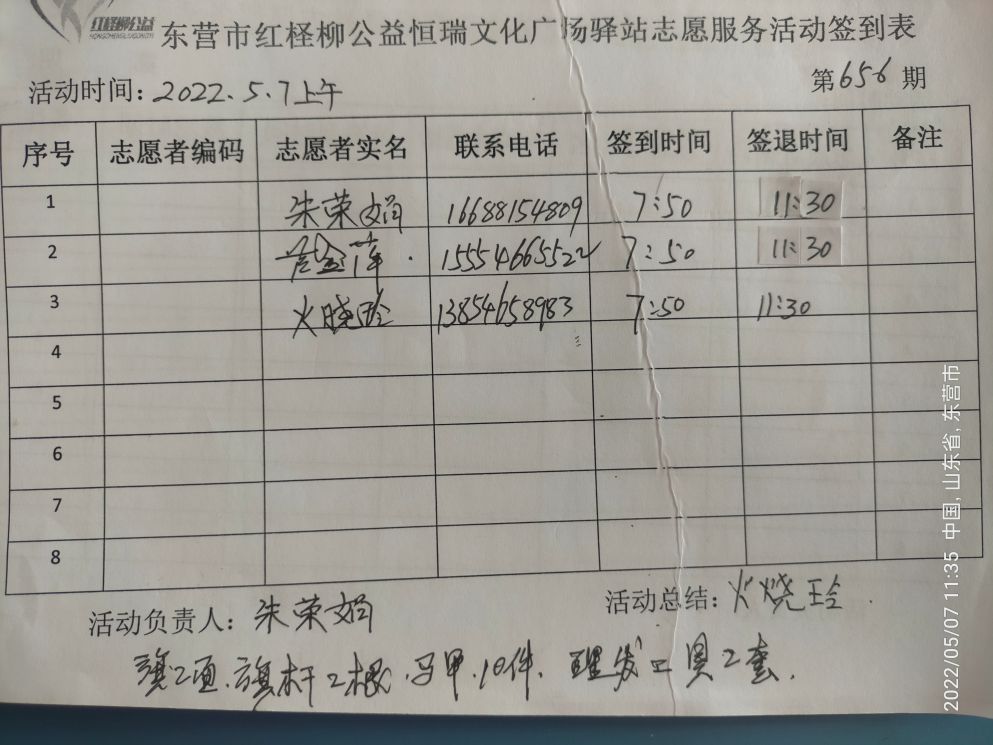 红柽柳公益
HONGCHENGLIUGONGYI
东营市红柽柳公益恒瑞文化广场驿站志愿服务活动签到表
活动时间：2022.5.7上午 第656期
序号 志愿者编码 志愿者实名 联系电话 签到时间 签退时间 备注
1 朱荣娟 16688154809 7:50 11:30
2 15554665522 7:50 11:30
3 火晓玲 13854658983 7:50 11:30
4
5
6
7
8
活动负责人：朱荣娟 活动总结：火晓玲
旗2面.旗杆2根.马甲.10件.理发工具2套.
2022/05/07 11:35 中国,山东省,东营市